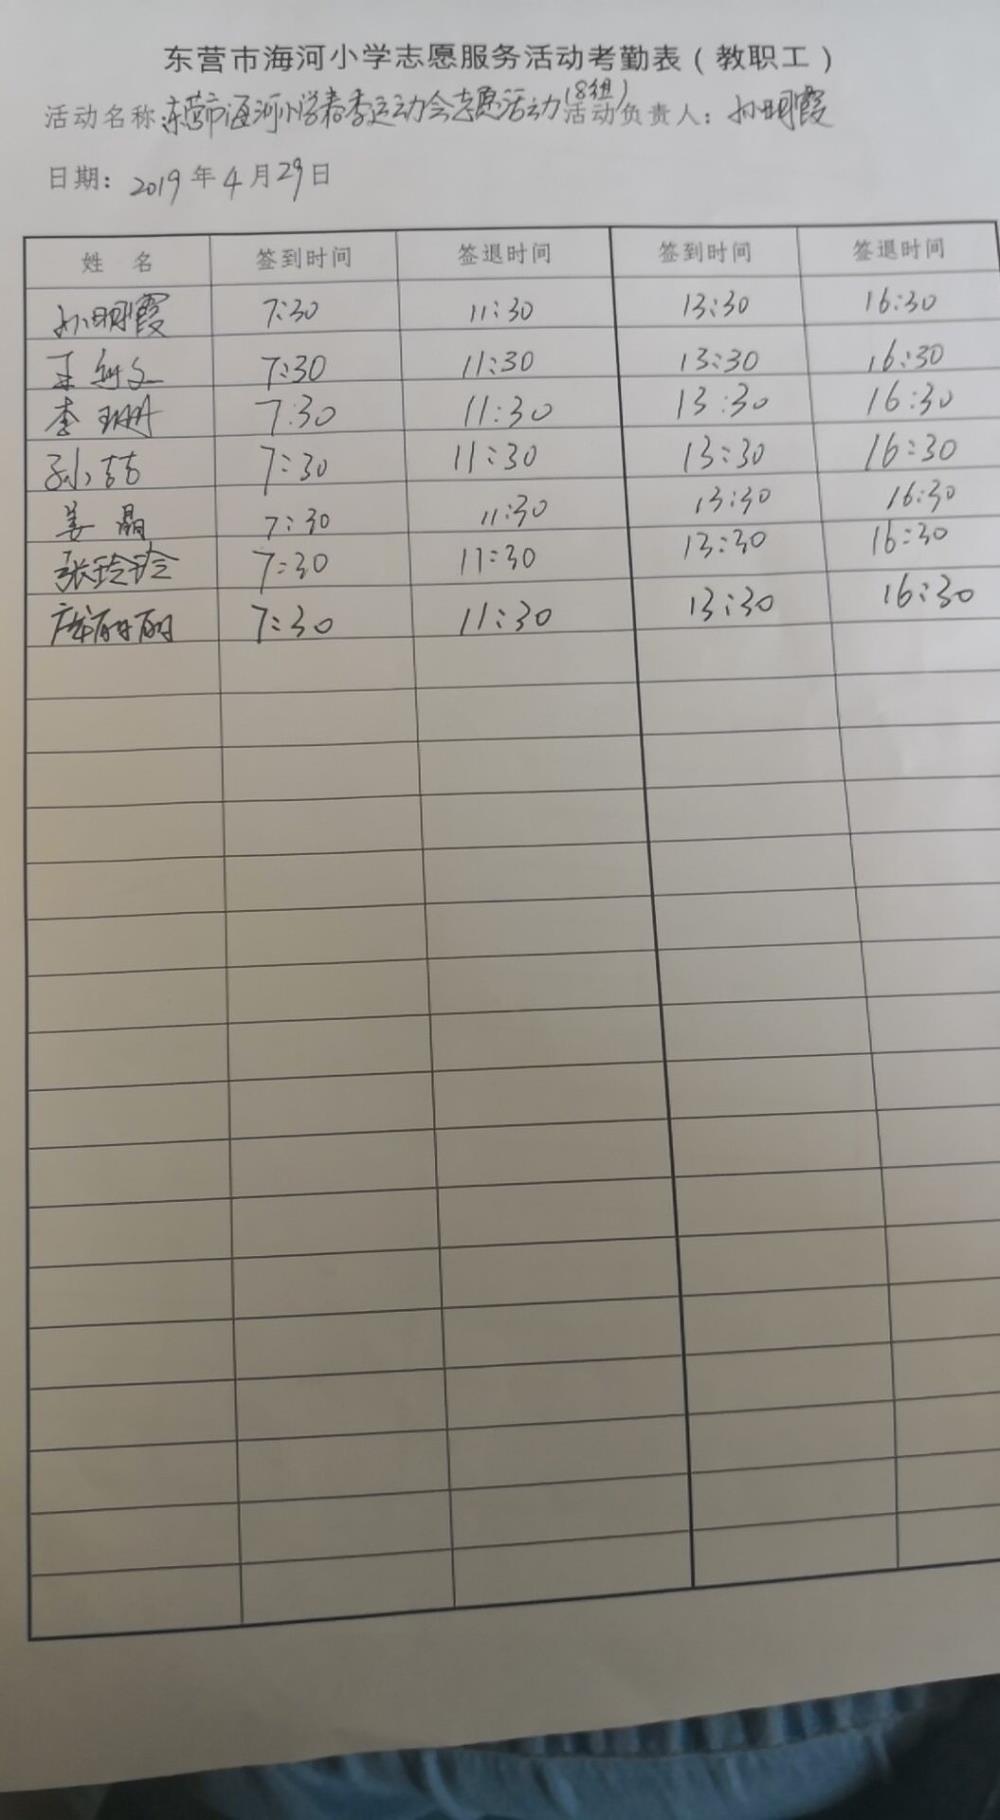 东营市海河小学志愿服务活动考勤表（教职工）
活动名称：东营市海河小学春季运动会志愿活动（8组） 活动负责人：孙明霞
日期：2019年4月29日
姓 名 签到时间 签退时间 签到时间 签退时间
孙明霞 7:30 11:30 13:30 16:30
王 文 7:30 11:30 13:30 16:30
李珊 7:30 11:30 13:30 16:30
孙喆 7:30 11:30 13:30 16:30
姜晶 7:30 11:30 13:30 16:30
张玲玲 7:30 11:30 13:30 16:30
庞丽丽 7:30 11:30 13:30 16:30